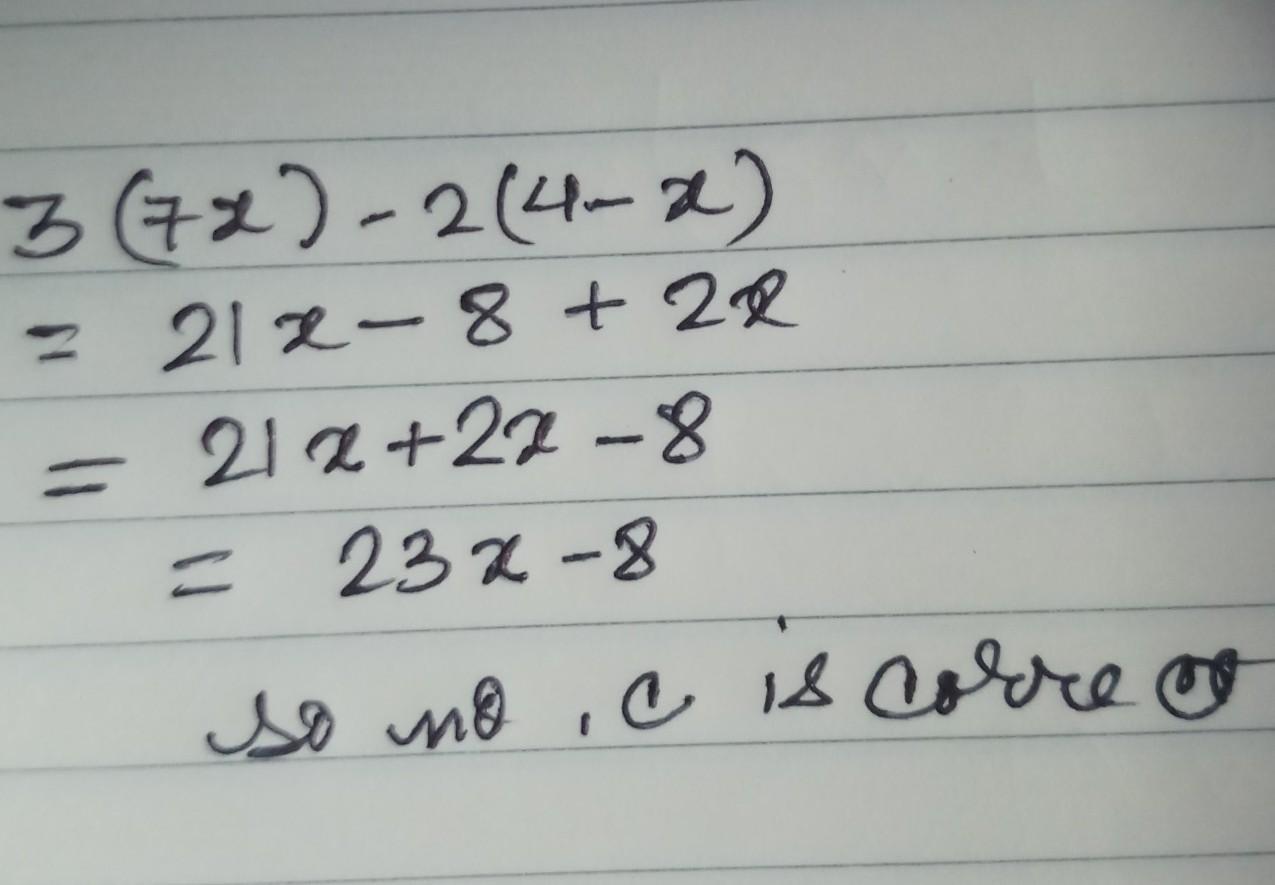 3(7x)-2(4-x)
= 21x-8+2x
= 21x+2x-8
= 23x-8
so no. c is correct